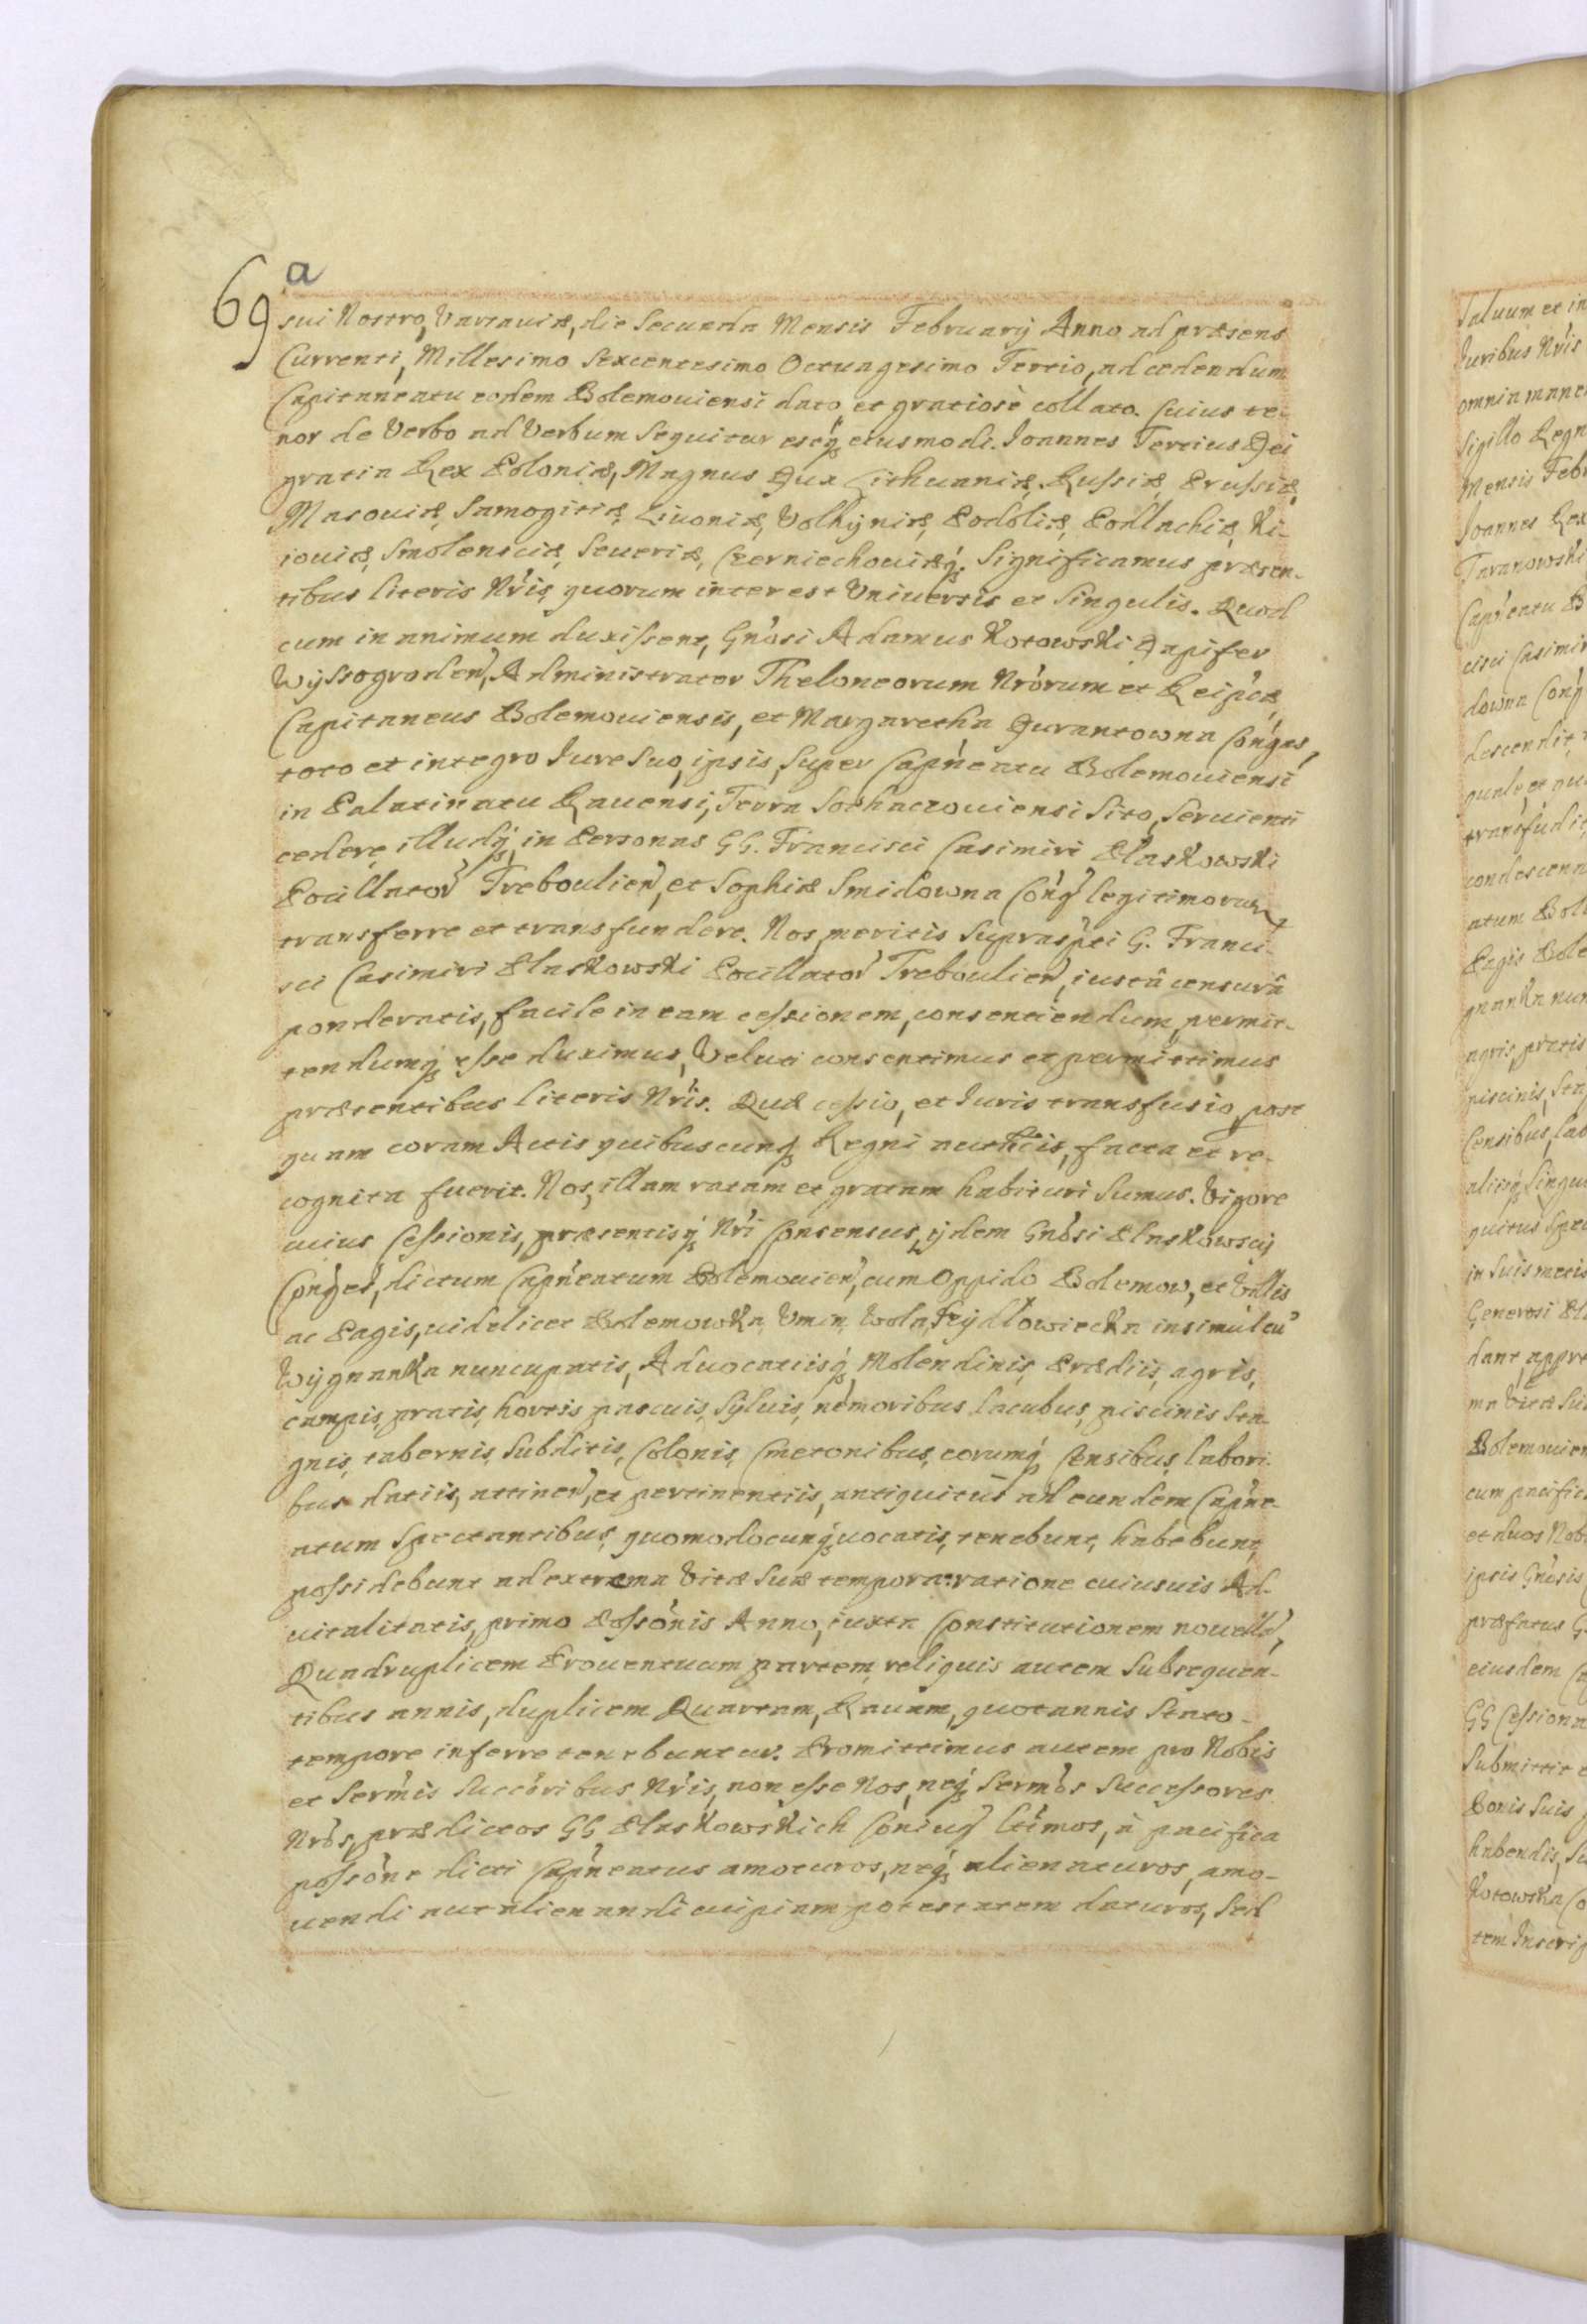 69 a
sui Nostro, Varsauiæ, die Secunda Mensis Februarij Anno ad præsens
Currenti, Millesimo Sexcentesimo Octuagesimo Tertio, ad cedendum
Capitaneatu eodem Bolemouiensi dato, et gratiosè collato. Cuius te-
nor de Verbo ad Verbum Sequitur estq́; eiusmodi. Joannes Tertius Dei
gratia Rex Poloniæ, Magnus Dux Lithuaniæ, Russiæ, Prussiæ,
Masouiæ, Samogitiæ, Liuoniæ, Volhÿniæ, Podoliæ, Podlachiæ, Ki-
iouiæ, Smolensciæ, Seueriæ, Czerniechouiæq́;. Significamus præsen-
tibus literis Nr̃is, quorum interest Vniuersis et Singulis. Quod
cum in animum duxissent, Gnõsi Adamus Kotowski Dapifer
Wÿssogroden̄, Administrator Theloneorum Nrõrum et Reipc̃æ,
Capitaneus Bolemouiensis, et Margaretha Durantowna Con̄ges,
toto et integro Jure Suo, ipsis, Super Capn̄eatu Bolemouiensi
in Palatinatu Rauensi, Terra Sochaczouiensi Sito, Seruienti
cedere, illudq́; in Personas GG. Francisci Casimiri Plaskowski
Pocillator̄ Treboulien̄, et Sophiæ Smidowna Con̄g̃ legitimorum
transferre et transfundere. Nos meritis Suprasp̃ti G. Franci-
sci Casimiri Plaskowski Pocillator̄ Treboulien̄, iustâ censurâ
ponderatis, facile in eam cessionem, consentiendum, permit-
tendumq́; esse duximus, Veluti consentimus et permittimus
præsentibus literis Nr̃is. Quæ cessio, et Juris transfusio, post
quam coram Actis quibuscunq́; Regni authcis, facta et re-
cognita fuerit. Nos, illam ratam et gratam habituri Sumus. Vigore
cuius Cessionis, præsentisq́; Nr̃i Consensus, ijdem Gnõsi Plaskowscij
Con̄ges, dictum Capn̄eatum Bolemouien̄, cum Oppido Bolemow, et Villis
ac Pagis, uidelicet Bolemowska, Vmin, Wola Szÿdlowiecka insimul cū
Wÿgnanka nuncupatis, Aduocatiisq́;, Molendinis, Prædiis, agris,
campis, pratis, hortis, pascuis, Sÿluis, nemoribus, lacubus, piscinis, Sta-
gnis, tabernis, Subditis, Colonis, Cmetonibus, eorumq́; Censibus, labori-
bus datiis, attinen̄, et pertinentiis, antiquitus ad eundem Capn̄e-
atum Spectantibus, quomodocunq́; uocatis, tenebunt, habebunt,
possidebunt ad extrema Vitæ Suæ tempora: ratione cuiusuis Ad-
uitalitatis, primo Possõnis Anno, iuxta Constitutionem nouellā,
Quadruplicem Prouentuum partem, reliquis autem Subsequen-
tibus annis, duplicem Quartam, Rauam, quotannis Stato-
tempore inferre tenebuntur. Promittimus autem pro Nobis
et Serm̃is Succõribus Nr̃is, non esse Nos, neq́; Serm̃os Successores
Nrõs, prædictos GG Plaskowskich Coniug̃ ltimos, à pacifica
possõne dicti Capn̄eatus amoturos, neq́; alienaturos, amo-
uendi aut alienandi cuipiam potestatem daturos, Sed